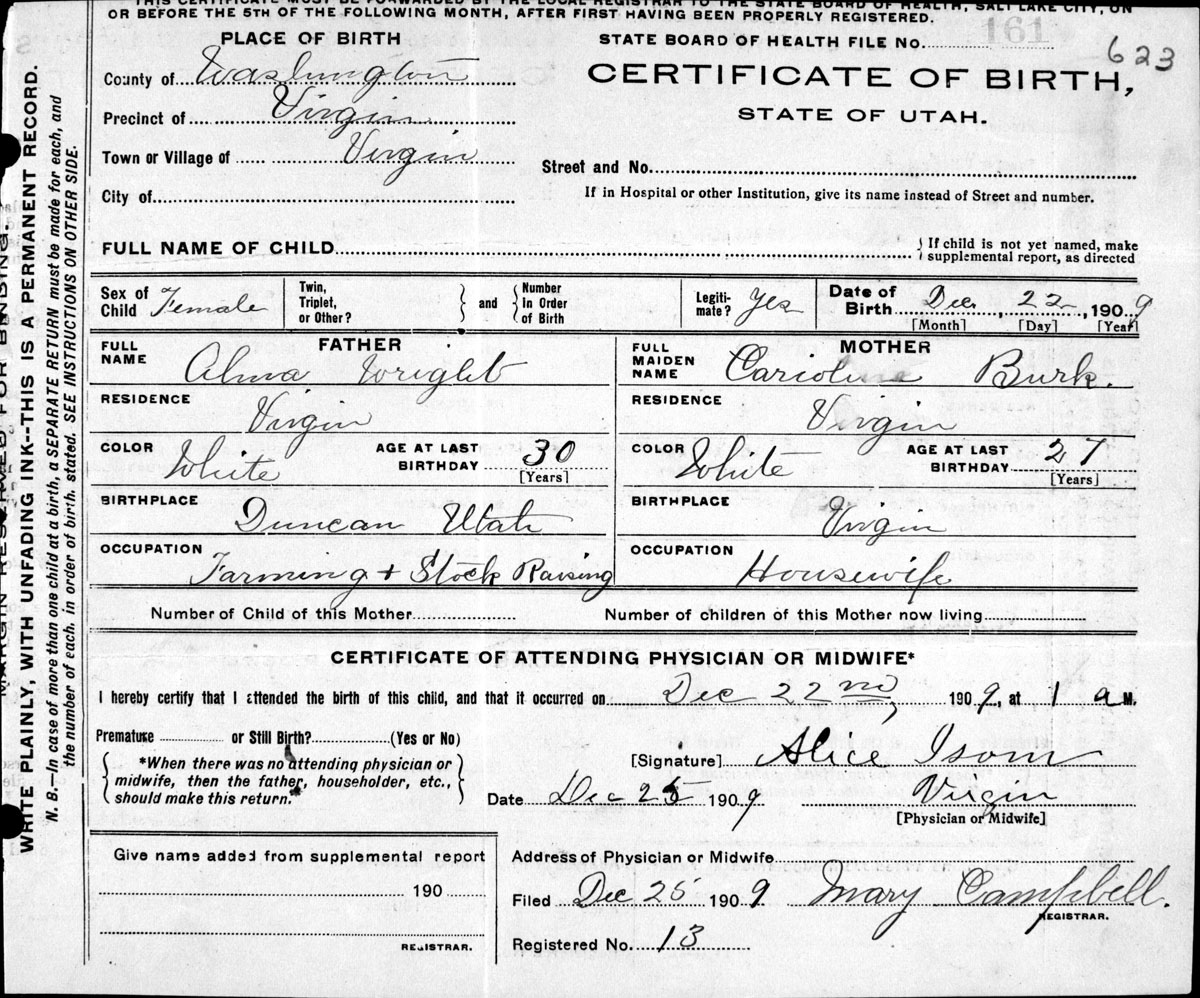 THIS CERTIFICATE MUST BE FORWARDED BY THE LOCAL REGISTRAR TO THE STATE BOARD OF HEALTH, SALT LAKE CITY, ON
OR BEFORE THE 5TH OF THE FOLLOWING MONTH, AFTER FIRST HAVING BEEN PROPERLY REGISTERED.
PLACE OF BIRTH
STATE BOARD OF HEALTH FILE NO. 161 623
County of Washington
CERTIFICATE OF BIRTH,
Precinct of Virgin
STATE OF UTAH.
Town or Village of Virgin
Street and No.
City of
If in Hospital or other Institution, give its name instead of Street and number.
FULL NAME OF CHILD
} If child is not yet named, make
supplemental report, as directed
Sex of Child Female
Twin, Triplet, or Other? } and { Number In Order of Birth
Legiti-mate? Yes
Date of Birth Dec. 22, 1909
[Month] [Day] [Year]
FATHER
FULL NAME Alma Wright
RESIDENCE Virgin
COLOR White AGE AT LAST BIRTHDAY 30 [Years]
BIRTHPLACE Duncan Utah
OCCUPATION Farming + Stock Raising
MOTHER
FULL MAIDEN NAME Carioline Burk.
RESIDENCE Virgin
COLOR White AGE AT LAST BIRTHDAY 27 [Years]
BIRTHPLACE Virgin
OCCUPATION Housewife
Number of Child of this Mother Number of children of this Mother now living
CERTIFICATE OF ATTENDING PHYSICIAN OR MIDWIFE*
I hereby certify that I attended the birth of this child, and that it occurred on Dec 22nd, 1909, at 1 a M.
Premature or Still Birth? (Yes or No)
*When there was no attending physician or
midwife, then the father, householder, etc.,
should make this return.
[Signature] Alice Isom
Date Dec 25 1909 Virgin
[Physician or Midwife]
Give name added from supplemental report
190
REGISTRAR.
Address of Physician or Midwife
Filed Dec 25 1909 Mary Campbell.
REGISTRAR.
Registered No. 13
MARGIN RESERVED FOR BINDING.
WRITE PLAINLY, WITH UNFADING INK--THIS IS A PERMANENT RECORD.
N. B.—In case of more than one child at a birth, a SEPARATE RETURN must be made for each, and
the number of each, in order of birth, stated. SEE INSTRUCTIONS ON OTHER SIDE.